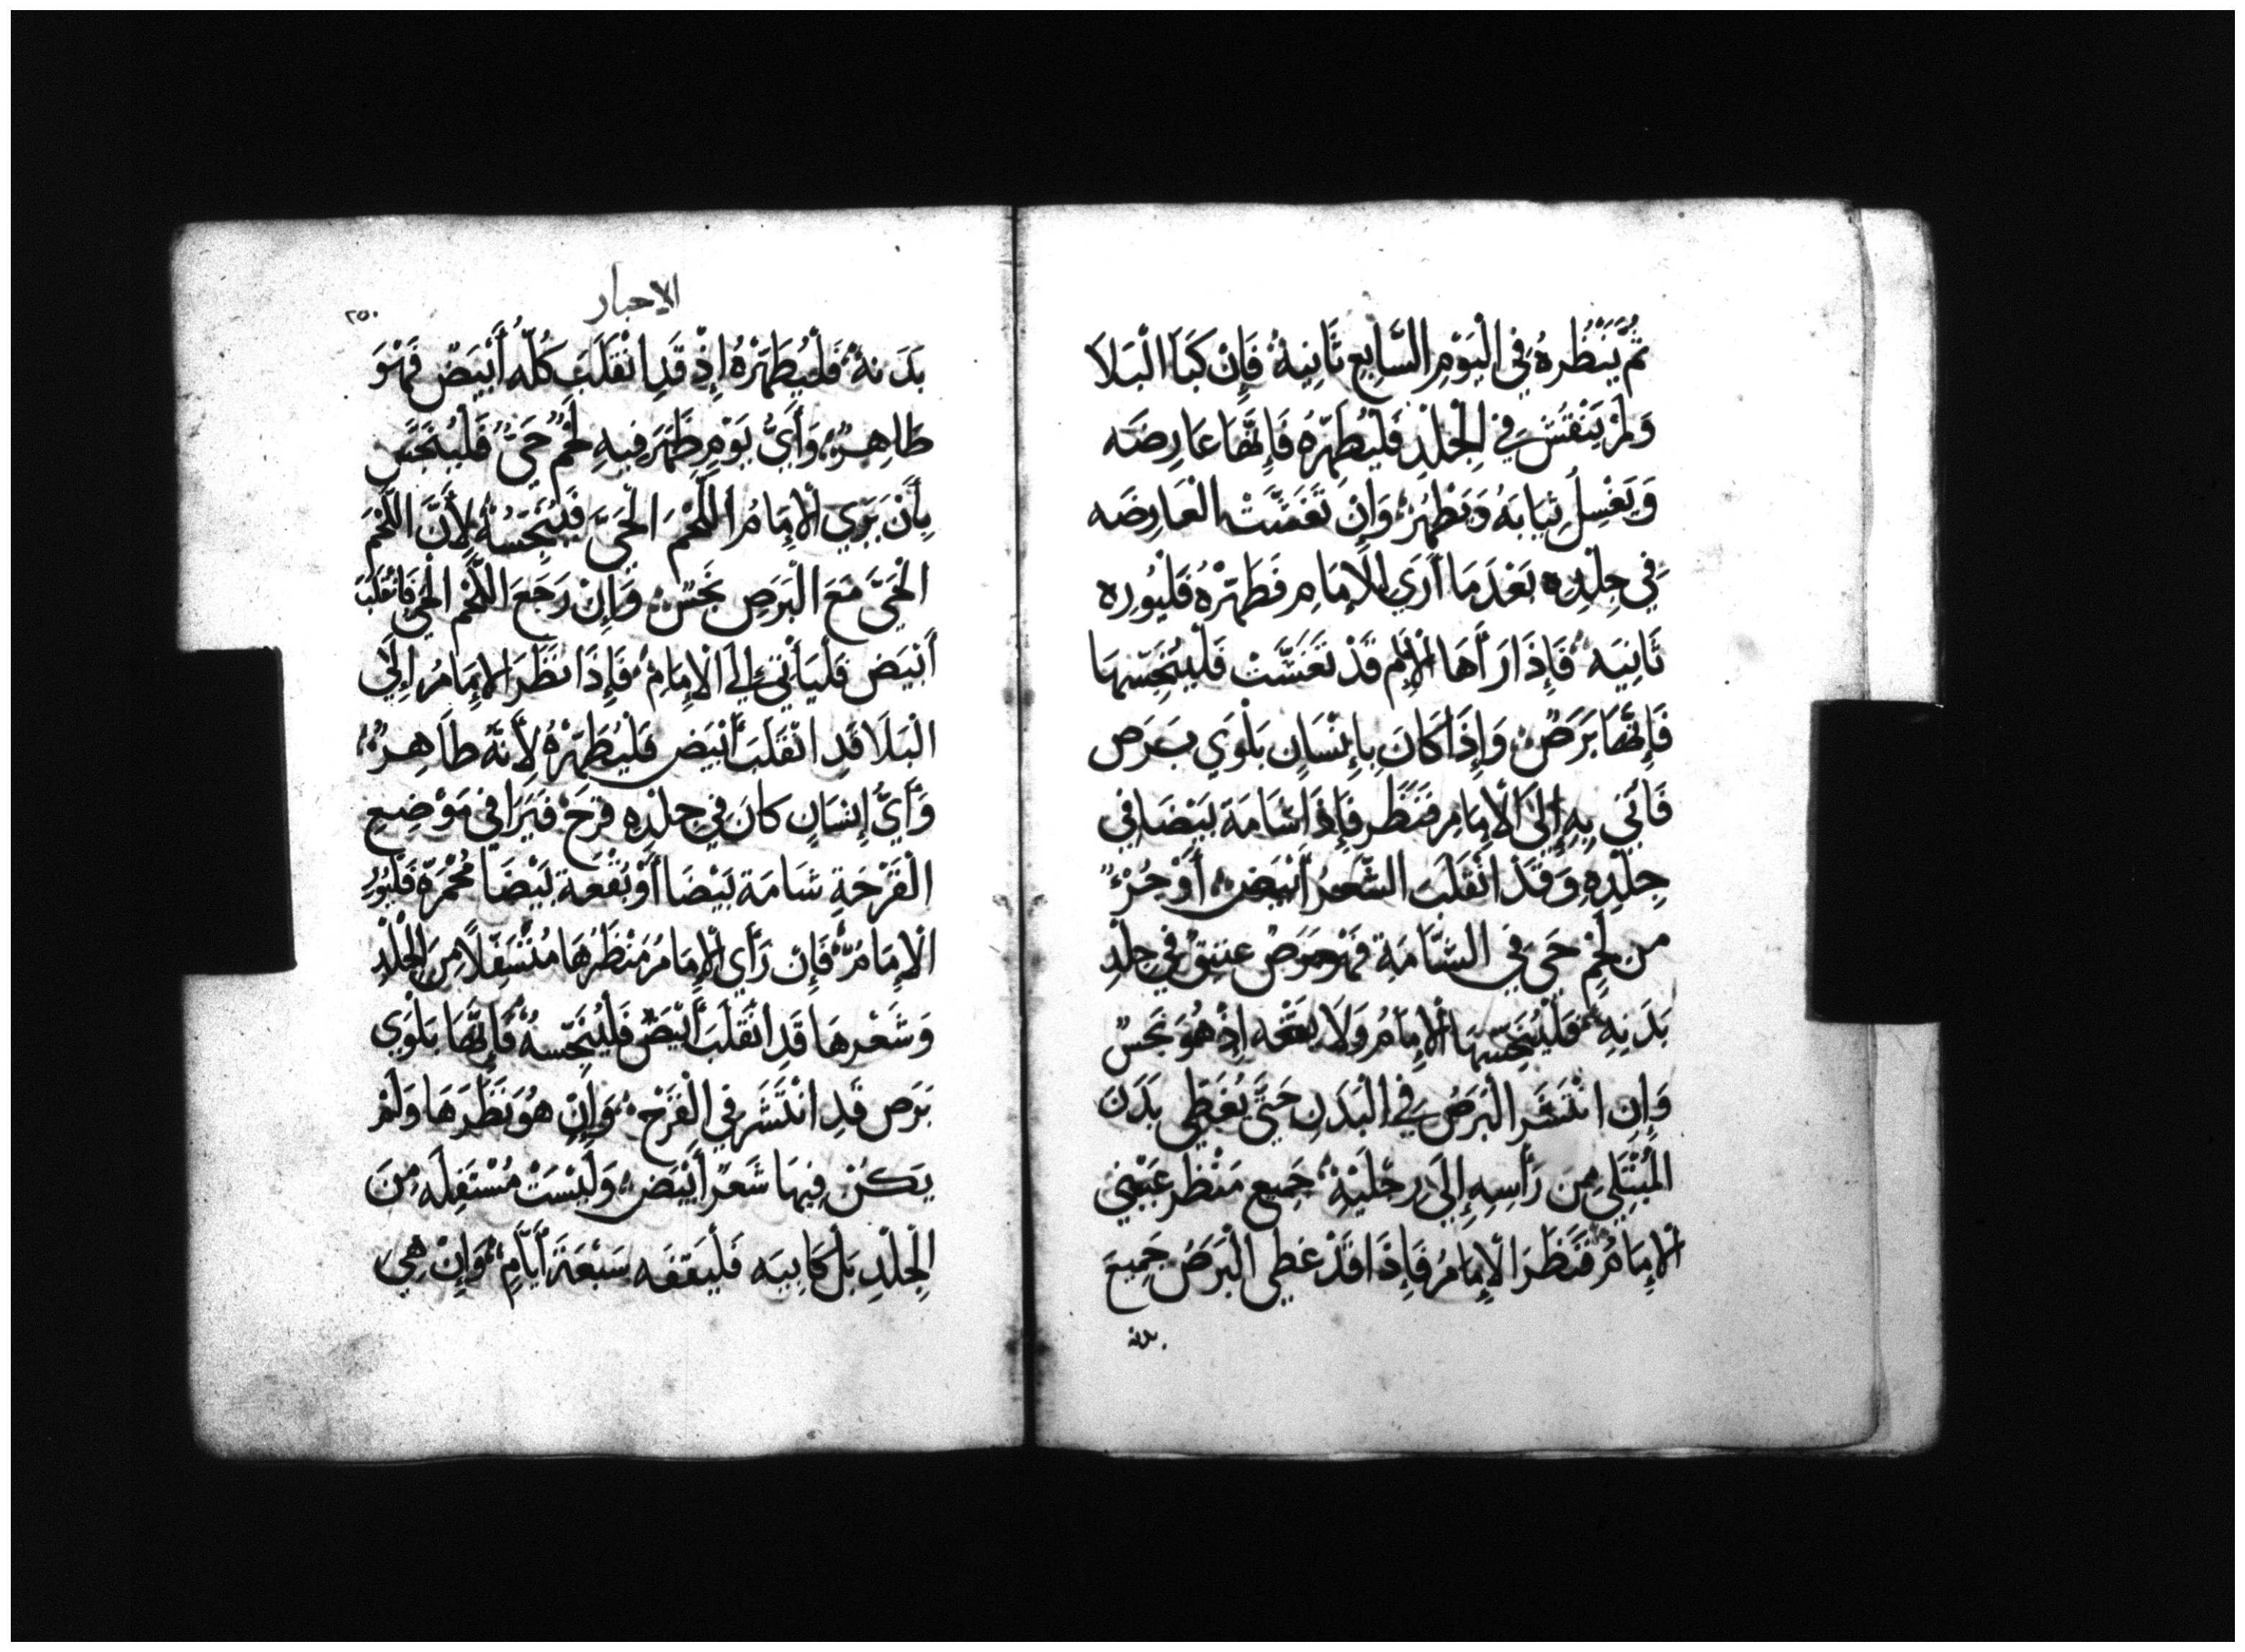 ثُمَّ يَنْظُرهُ فِي الْيَوْمِ السَّابِعِ ثَانِيةً فَإِنْ كَبَا الْبَلَا
وَلَمْ يَنْفَشِ فِي الْجِلْدِ فَلْيُطَهِّرْهُ فَإِنَّهَا عَارِضَه
وَيَغْسِلُ ثِيَابَهُ وَيَطْهُرْ وَإِنْ تَغَشَّتْ الْعَارِضَه
فِي جِلْدِهِ بَعْدَمَا أُرِيَ لِلْإِمَامِ فَطَهَّرْهُ فَلْيُورِه
ثَانِيَه فَإِذَا رَأَهَا الْإِمَام قَدْ تَغَشَّتْ فَلْيُنَجِّسْهَا
فَإِنَّهَا بَرَصٌ وَإِذَا كَانَ بِإِنْسَانٍ بَلْوَي بَرَص
فَأُتِيَ بِهِ إِلَى الْإِمَامِ فَنَظَر فَإِذَا شَامَة بَيْضَا فِي
جِلْدِهِ وَقَدْ انْقَلَبَ الشَّعْرُ أَبْيَض أَوْ جُزْءٌ
مِن لَحْمٍ حَيٍ فِي الشَّامَةِ فَهُوَ بَرَصٌ عَتِيقٌ فِي جِلْدِ
بَدَنِهِ فَلْيُنَجِّسْهَا الْإِمَامُ وَلَا يقفه إِذْ هُوَ نَجِسٌ
وَإِن انْتَشَرَ الْبَرَصُ فِي الْبَدَنِ حَتَّى يُغَطِّي بَدَنَ
الْمُبْتَلَى مِن رَأْسِهِ إِلَى رِجْلَيْهِ جَمِيع مَنْظَر عَيْنَيِ
الْإِمَامُ فَنَظَرَ الْإِمَامُ فَإِذَا قَدْ غَطِي الْبَرَصُ جَمِيعَ
بدنه
الاحبار
٢٥٠
بَدَنهُ فَلْيُطَهِّرْهُ إِذْ قَدِ انْقَلَبَ كُلُّهُ أَبْيَضَ فَهْوَ
طَاهِرٌ وَأَيَّ يَوْمٍ ظَهَرَ فِيهِ لَحْمٌ حَيٌّ فَلْيُنَجَّس
بِأَنْ يَرَي الْإِمَامُ اللَّحْمَ الْحَيَّ فَيُنَجِّسُهُ لِأَنَّ اللَّحْمَ
الْحَيَّ مَعَ الْبَرَصِ نَجَسٌ وَإِنْ رَجَعَ اللَّحْمُ الْحَيُّ فَانْقَلَبَ
أَبْيَض فَليَأْتِي إِلَي الْإِمَامْ فَإِذَا نَظَرَ الْإِمَامُ إِلَي
الْبَلَا قَدِ انْقَلَبَ أَبْيَض فَلْيُطَهِّرْهُ لِأَنَّهُ طَاهِرٌ
وَأَيُّ إِنْسَانٍ كَانَ فِي جِلْدِهِ قَرْحٌ فَيَرَا فِي مَوْضِعِ
الْقَرْحَةِ شَامَة بَيْضَا أَوْ بُقْعَة بَيْضَا مُحْمَرَّه فَلْيُرِ
الْإِمَامُ فَإِن رَأَي الْإِمَامُ مَنْظَرُهَا مُتَسَفِّلًا مِنَ الْجِلْدِ
وَشَعْرهَا قَدِ انْقَلَبَ أَبْيَضٌ فَلْيُنَجِّسهُ فَإِنَّهَا بَلْوَي
بَرَص قَدِ انْتَشَرَ فِي الْقَرْحِ وَإِن هُوَ نَظَرَهَا وَلَمْ
يَكُنْ فِيهَا شَعَرٌ أَبْيَض وَلَيْسَتْ مُسْتَفِلَه مِنَ
الْجِلْدِ بَلْ كَابِيَه فَلْيَقِفَه سَبْعَةَ أَيَّامٍ وَإِنْ هِيَ